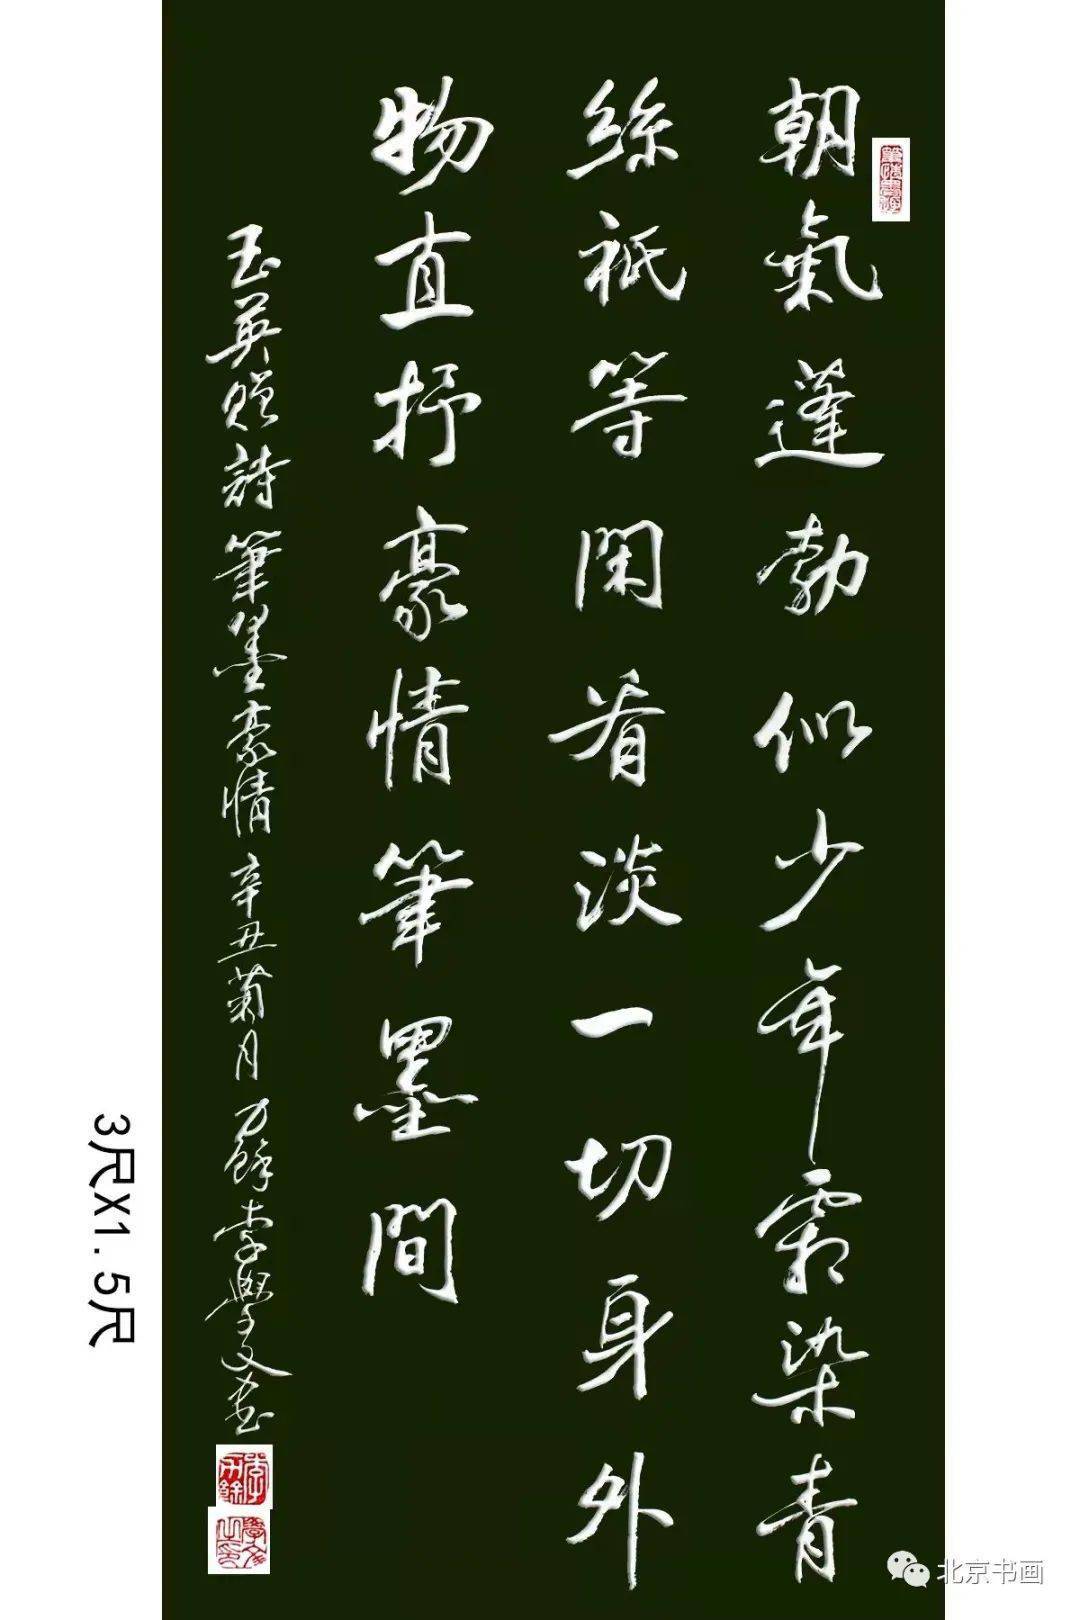 朝氣蓬勃似少年霜染青
絲祇等閑看淡一切身外
物直抒豪情筆墨間
玉英贈詩筆墨豪情辛丑菊月万餘李學文書
3尺X1.5尺
北京书画